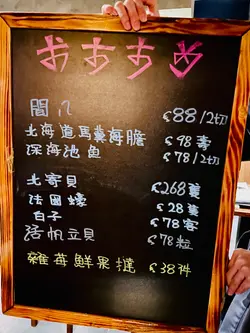 おすすめ
間八 $88/2切
北海道馬糞海膽 $98壽
深海池魚 $78/2切
北寄貝 $268隻
法國蠔 $28隻
白子 $78客
活帆立貝 $78粒
雜苺鮮果撻 $38件